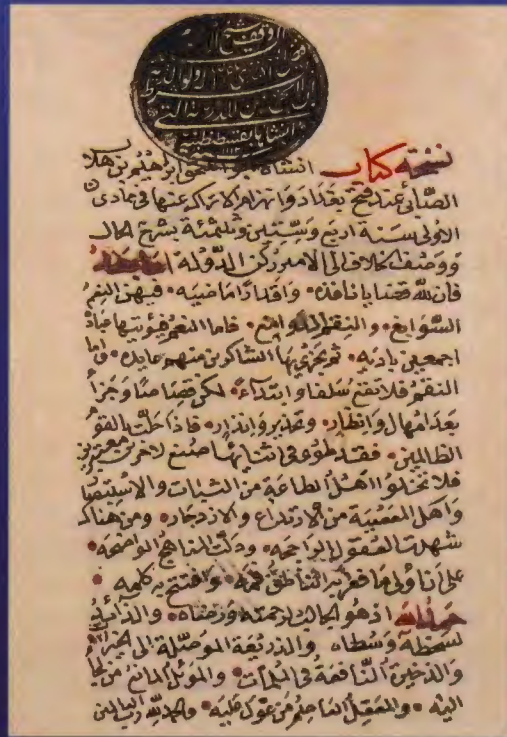 وقف شيخ الاسلام
فيض الله افندى
بشرط ان لا يخرج من المدرسة التى
انشاها بقسطنطينية
١١١٢
نسخة كتاب انشاه ابو اسحق ابراهيم بن هلال
الصابى عند فتح بغداد وانهزام الاتراك عنها فى جمادى
الاولى سنة اربع وستين وثلثمئة يشرح الحال
ووصف الخلاف الى الامير ركن الدولة
فان لله قضايا نافذة • واقدارا ماضية • فيهن النعم
السوابغ • والنقم الدوامغ • فاما النعم فيؤتيها عباده
اجمعين بادية • ثم يجزى بها الشاكرين منهم عايدة • واما
النقم فلا تقع سلفا وابتداء • لكن قصاصا وجزاء
بعد امهال وانظار • وتحذير وانذار • فاذا حلت بالقوم
الظالمين • فقد طوى فى اثنائها صنع لاخرين معتبرين
فلا تخلوا اهل الطاعة من الثبات والاستبصار
واهل المعصية من الارتداع والازدجار • ومن هناك
شهدت العقول الراجحة • ودلت المناهج الواضحة •
على ان اولى ما فغر به الناطق فمه • وافتتح به كلمه •
حمد الله اذ هو الجالب لرحمته ورضاه • والذائد
لسخطه وسطاه • والذريعة الموصلة الى الخيرات
والذخيرة النافعة فى الملمات • والموئل المانع من لجأ
اليه • والمعقل العاصم من عول عليه • والحمد لله رب العالمين